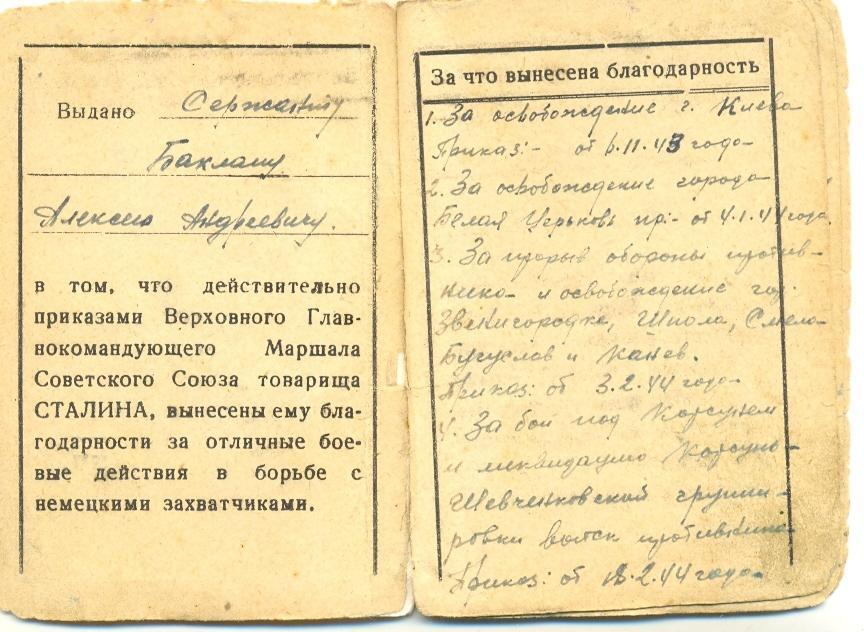 Выдано Сержанту
Баклану
Алексею Андреевичу.
в том, что действительно
приказами Верховного Глав-
нокомандующего Маршала
Советского Союза товарища
СТАЛИНА, вынесены ему бла-
годарности за отличные бое-
вые действия в борьбе с
немецкими захватчиками.
За что вынесена благодарность
1. За освобождение г. Киева
Приказ:- от 6.11.43 года
2. За освобождение города
Белая Церьковь пр:- от 4.1.44 года.
3. За прорыв обороны против-
ника и освобождение гор.
Звенигородка, Шпола, Смела
Бугуслав и Канев.
Приказ: от 3.2.44 года
4. За бой под Корсунем
и ликвидацию Корсунь-
Шевченковской группи-
ровки войск противника
Приказ: от 18.2.44 года